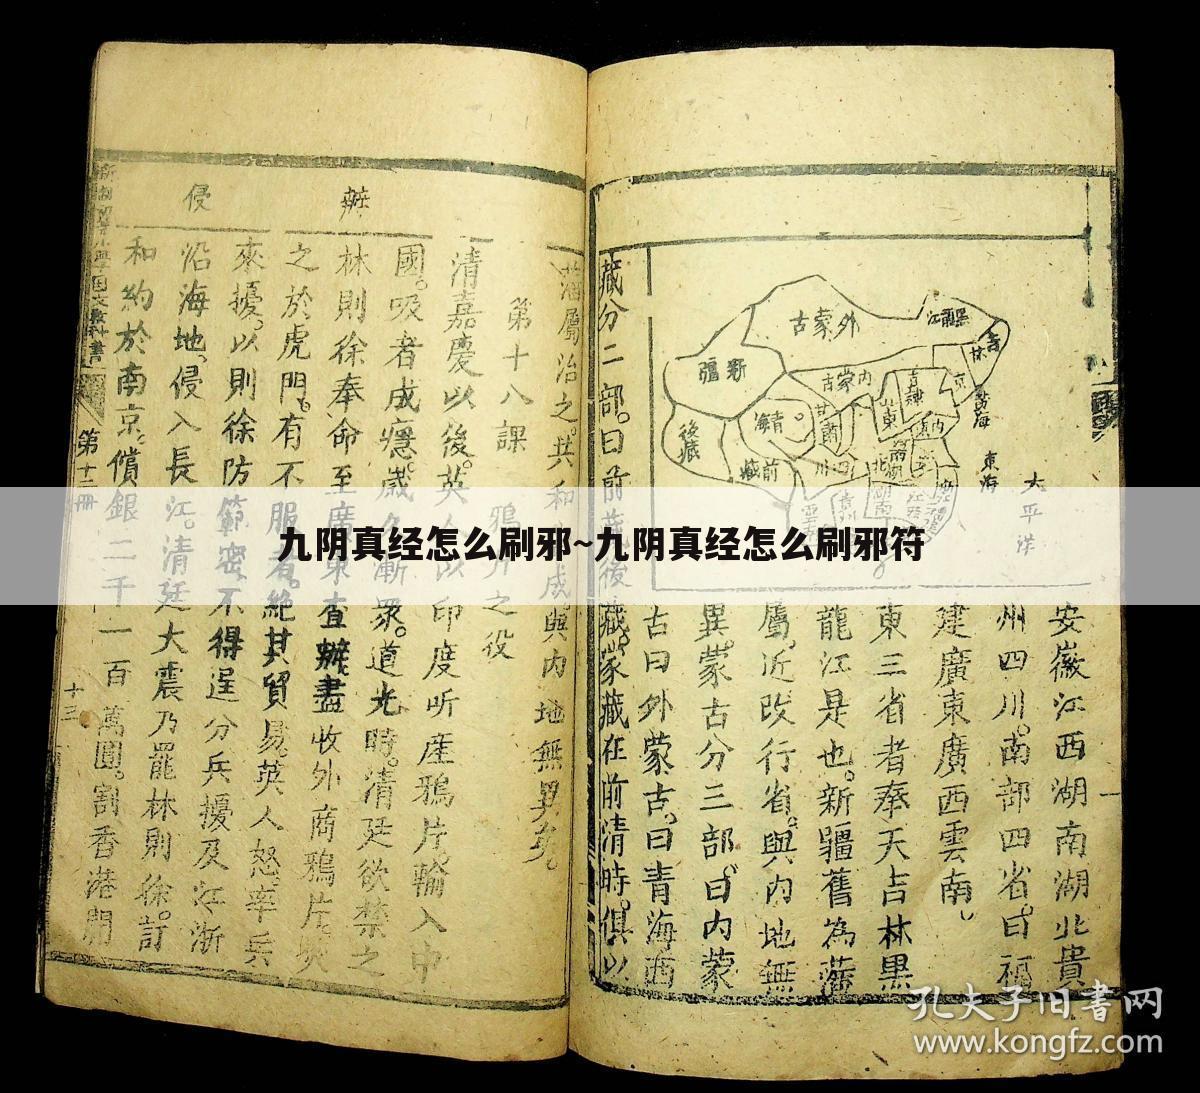 安徽江西湖南湖北貴
州四川。南部四省。曰福
建廣東廣西雲南。
東三省者奉天吉林黑
龍江是也。新疆舊為藩
屬。近改行省。與內地無
異。蒙古分三部。曰內蒙
古曰外蒙古。曰青海西
藏分二部。曰前藏後藏。蒙藏在前清時。俱以
外蒙古
黑龍江
吉林
新疆
內蒙古
青海
甘肅
後藏
前藏
四川
直隸
山東
京
黃海
東海
太平洋
湖南
藩屬治之。共和成。與內地無異矣。
第十八課 鴉片之役
清嘉慶以後。英人以印度所產鴉片。輸入中
國。吸者成癮。歲久漸眾。道光時。清廷欲禁之
林則徐奉命至廣東查辦。盡收外商鴉片。焚
之於虎門。有不服者。絕其貿易。英人怒。率兵
來擾。以則徐防範密。不得逞。分兵擾及江浙
沿海地。侵入長江。清廷大震。乃罷林則徐。訂
和約於南京。償銀二千一百萬圓。割香港。開
辦
侵
小學國文教科書
第十二冊
十三
九阴真经怎么刷邪~九阴真经怎么刷邪符
孔夫子旧书网
www.kongfz.com